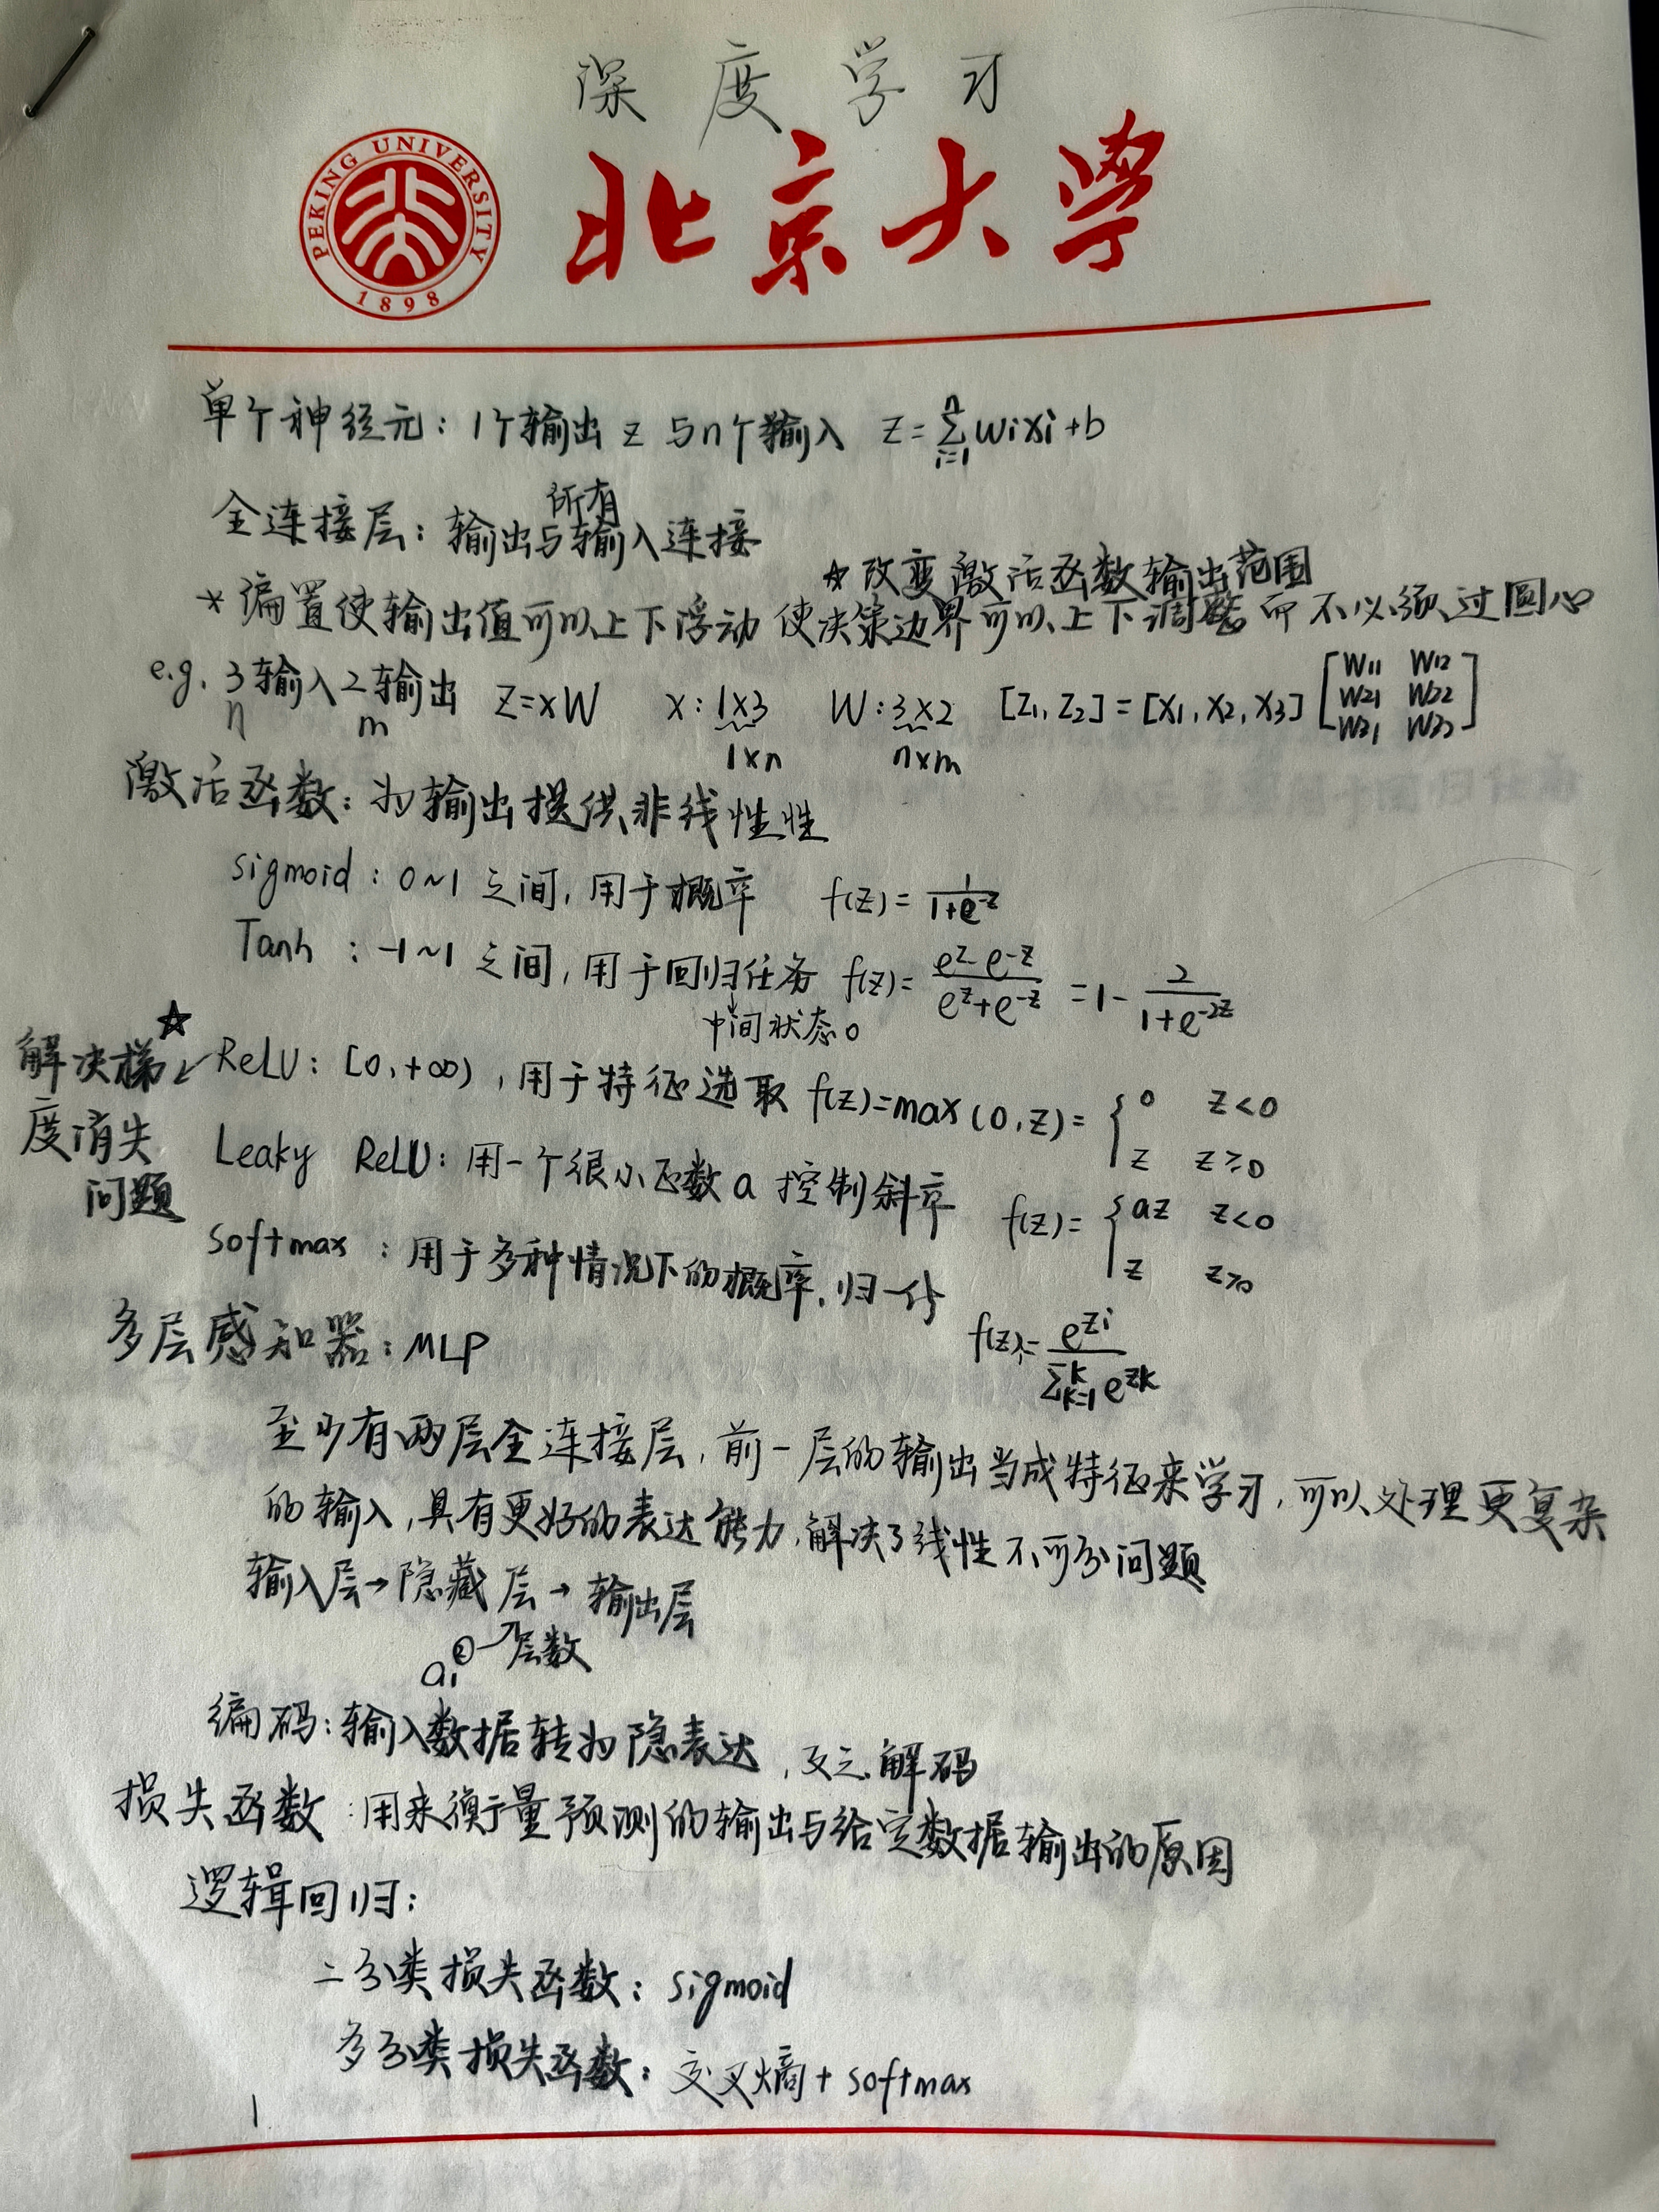 深度学习
PEKING UNIVERSITY
1898
北京大学
单个神经元：1个输出 z 与n个输入 z = Σ_{i=1}^{n} wixi + b
全连接层：输出与所有输入连接
☆改变激活函数输出范围
* 偏置使输出值可以上下浮动 使决策边界可以上下调整而不必须过圆心
e.g. 3输入2输出 Z=xW x:1×3 W:3×2 [Z1, Z2] = [X1, X2, X3] [W11 W12
W21 W22
W31 W32]
n m 1×n n×m
激活函数：为输出提供非线性性
sigmoid : 0~1 之间, 用于概率 f(z) = 1/(1+e^{-z})
Tanh : -1~1 之间, 用于回归任务 f(z) = (e^z - e^{-z})/(e^z + e^{-z}) = 1 - 2/(1+e^{-2z})
中间状态0
☆
解决梯度消失问题
ReLU: [0, +∞) , 用于特征选取 f(z)=max(0,z)= { 0 z<0
z z≥0
Leaky ReLU: 用一个很小正数a 控制斜率 f(z)= { az z<0
z z≥0
softmax : 用于多种情况下的概率, 归一化 f(z)i = e^{zi}/Σ_{k=1}^{K} e^{zk}
多层感知器: MLP
至少有两层全连接层, 前一层的输出当成特征来学习, 可以处理更复杂
的输入, 具有更好的表达能力, 解决了线性不可分问题
输入层→隐藏层→输出层
a1^② →层数
编码: 输入数据转为隐表达, 反之解码
损失函数 :用来衡量预测的输出与给定数据输出的原因
逻辑回归:
二分类损失函数: sigmoid
多分类损失函数: 交叉熵 + softmax
1